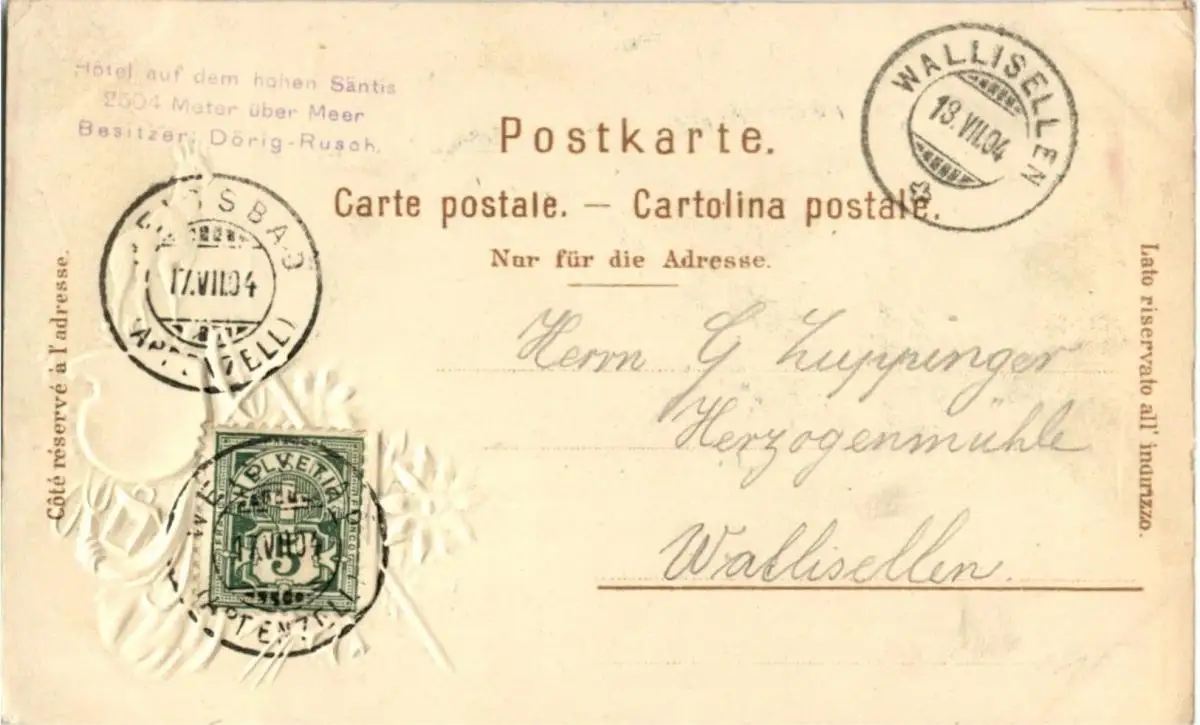 Hôtel auf dem hohen Säntis
2504 Meter über Meer
Besitzer: Dörig-Rusch.
WALLISELLEN
18.VII.04
Postkarte.
Carte postale. – Cartolina postale.
Nur für die Adresse.
WEISSBAD
17.VII.04
(APPENZELL)
Côté réservé à l'adresse.
Lato riservato all' indirizzo.
Herrn G Zuppinger
Herzogenmühle
Wallisellen.
HELVETIA
FRANCO
5
17.VII.04
(APPENZELL)